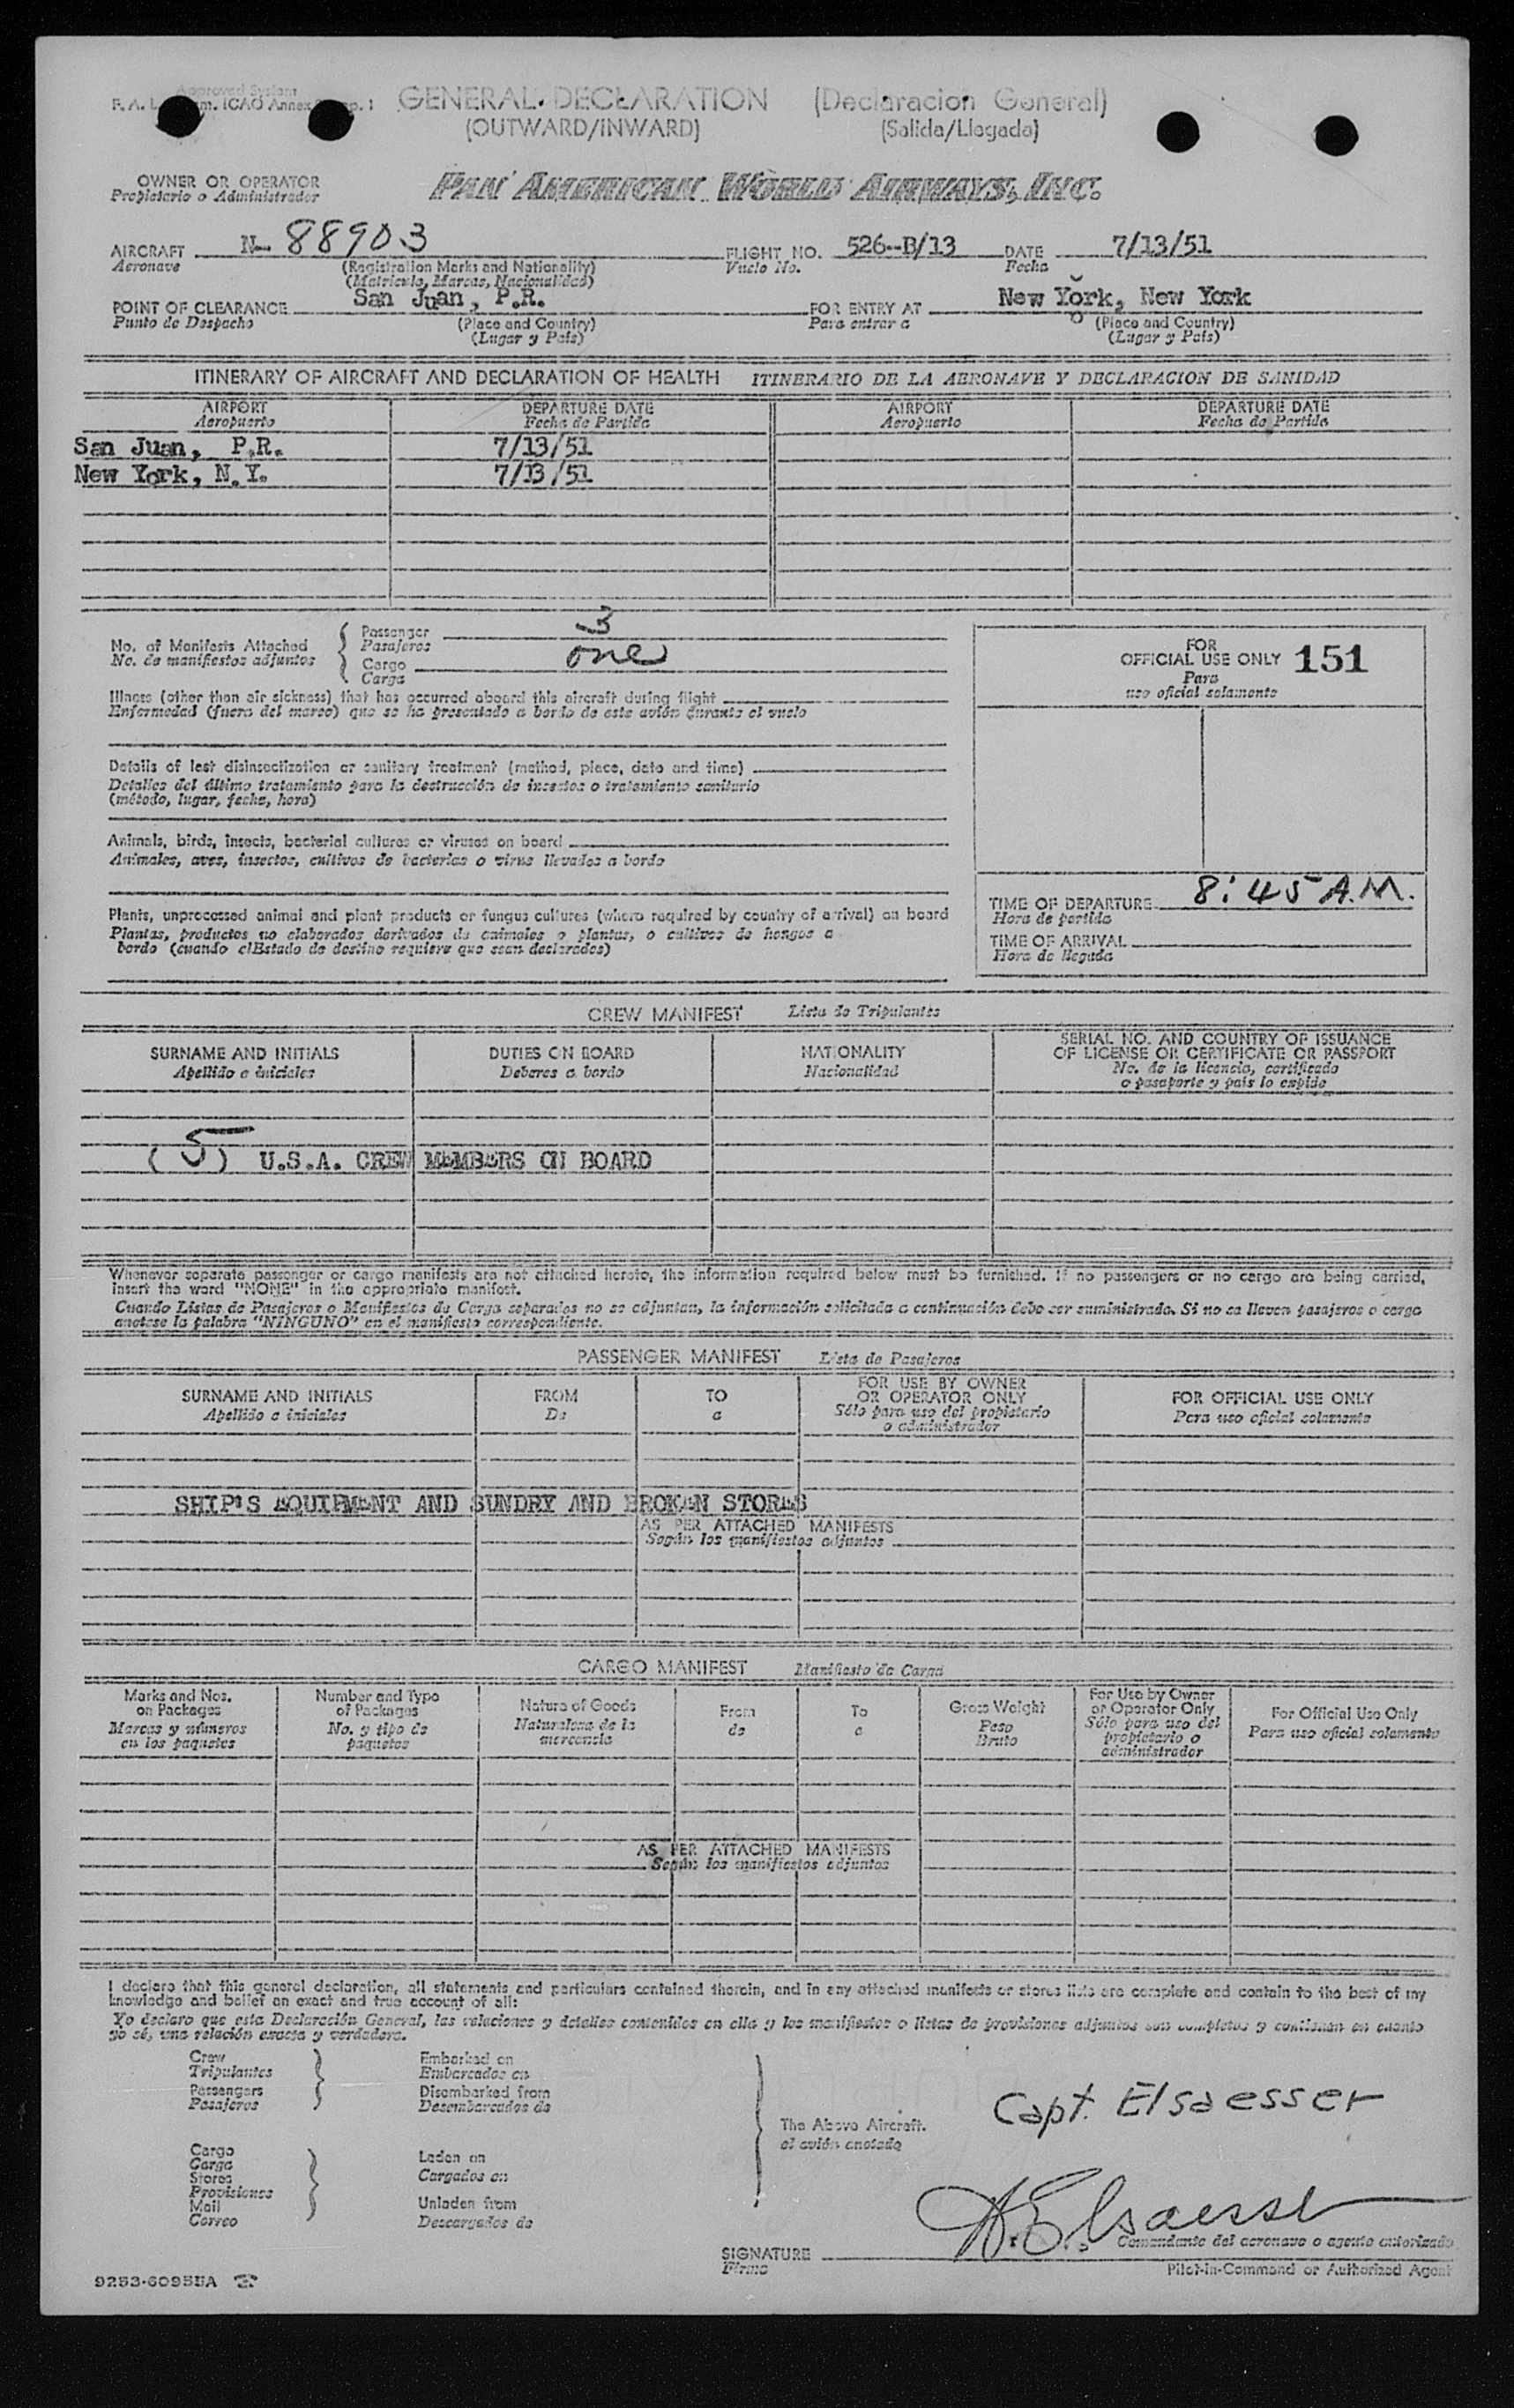 Approved System
F. A. L. ICAO Annex p. 1
GENERAL DECLARATION (Declaracion General)
(OUTWARD/INWARD) (Salida/Llegada)
OWNER OR OPERATOR
Propietario o Administrador
PAN AMERICAN WORLD AIRWAYS, INC.
AIRCRAFT N- 88903 FLIGHT NO. 526-B/13 DATE 7/13/51
Aeronave (Registration Marks and Nationality) Vuelo No. Fecha
(Matricula, Marcas, Nacionalidad)
POINT OF CLEARANCE San Juan, P.R. FOR ENTRY AT New York, New York
Punto de Despacho (Place and Country) Para entrar a (Place and Country)
(Lugar y País) (Lugar y País)
ITINERARY OF AIRCRAFT AND DECLARATION OF HEALTH ITINERARIO DE LA AERONAVE Y DECLARACION DE SANIDAD
AIRPORT DEPARTURE DATE AIRPORT DEPARTURE DATE
Aeropuerto Fecha de Partida Aeropuerto Fecha de Partida
San Juan, P.R. 7/13/51
New York, N.Y. 7/13/51
No. of Manifests Attached
No. de manifiestos adjuntos
Passenger 3
Pasajeros
Cargo one
Carga
FOR
OFFICIAL USE ONLY 151
Para
uso oficial solamente
Illness (other than air sickness) that has occurred aboard this aircraft during flight
Enfermedad (fuera del mareo) que se ha presentado a bordo de este avión durante el vuelo
Details of last disinsectization or sanitary treatment (method, place, date and time)
Detalles del último tratamiento para la destrucción de insectos o tratamiento sanitario
(método, lugar, fecha, hora)
Animals, birds, insects, bacterial cultures or viruses on board
Animales, aves, insectos, cultivos de bacterias o virus llevados a bordo
Plants, unprocessed animal and plant products or fungus cultures (where required by country of arrival) on board
Plantas, productos no elaborados derivados de animales o plantas, o cultivos de hongos a
bordo (cuando elEstado de destino requiere que sean declarados)
TIME OF DEPARTURE 8:45 A.M.
Hora de partida
TIME OF ARRIVAL
Hora de llegada
CREW MANIFEST Lista de Tripulantes
SURNAME AND INITIALS DUTIES ON BOARD NATIONALITY SERIAL NO. AND COUNTRY OF ISSUANCE
OF LICENSE OR CERTIFICATE OR PASSPORT
Apellido e iniciales Deberes a bordo Nacionalidad No. de la licencia, certificado
o pasaporte y pais lo expide
(5) U.S.A. CREW MEMBERS ON BOARD
Whenever separate passenger or cargo manifests are not attached hereto, the information required below must be furnished. If no passengers or no cargo are being carried,
insert the word "NONE" in the appropriate manifest.
Cuando Listas de Pasajeros o Manifiestos de Carga separados no se adjuntan, la información solicitada a continuación debe ser suministrada. Si no se llevan pasajeros o carga
anotese la palabra "NINGUNO" en el manifiesto correspondiente.
PASSENGER MANIFEST Lista de Pasajeros
SURNAME AND INITIALS FROM TO FOR USE BY OWNER
OR OPERATOR ONLY FOR OFFICIAL USE ONLY
Apellido e iniciales De a Sólo para uso del propietario
o administrador Para uso oficial solamente
SHIP'S EQUIPMENT AND SUNDRY AND BROKEN STORES
AS PER ATTACHED MANIFESTS
Según los manifiestos adjuntos
CARGO MANIFEST Manifiesto de Carga
Marks and Nos.
on Packages
Marcas y números
en los paquetes
Number and Type
of Packages
No. y tipo de
paquetes
Nature of Goods
Naturaleza de la
mercancia
From
de
To
a
Gross Weight
Peso
Bruto
For Use by Owner
or Operator Only
Sólo para uso del
propietario o
administrador
For Official Use Only
Para uso oficial solamente
AS PER ATTACHED MANIFESTS
Según los manifiestos adjuntos
I declare that this general declaration, all statements and particulars contained therein, and in any attached manifests or stores lists are complete and contain to the best of my
knowledge and belief an exact and true account of all:
Yo declaro que esta Declaración General, las relaciones y detalles contenidos en ella y los manifiestos o listas de provisiones adjuntos son completos y contienen en cuanto
yo sé, una relación exacta y verdadera.
Crew
Tripulantes
Passengers
Pasajeros
Embarked on
Embarcados en
Disembarked from
Desembarcados de
Cargo
Carga
Stores
Provisiones
Mail
Correo
Laden on
Cargados en
Unladen from
Descargados de
The Above Aircraft.
el avión anotado
Capt. Elsaesser
A. Elsaesser
SIGNATURE Comandante del aeronave o agente autorizado
Firma Pilot-in-Command or Authorized Agent
9253-6095EA